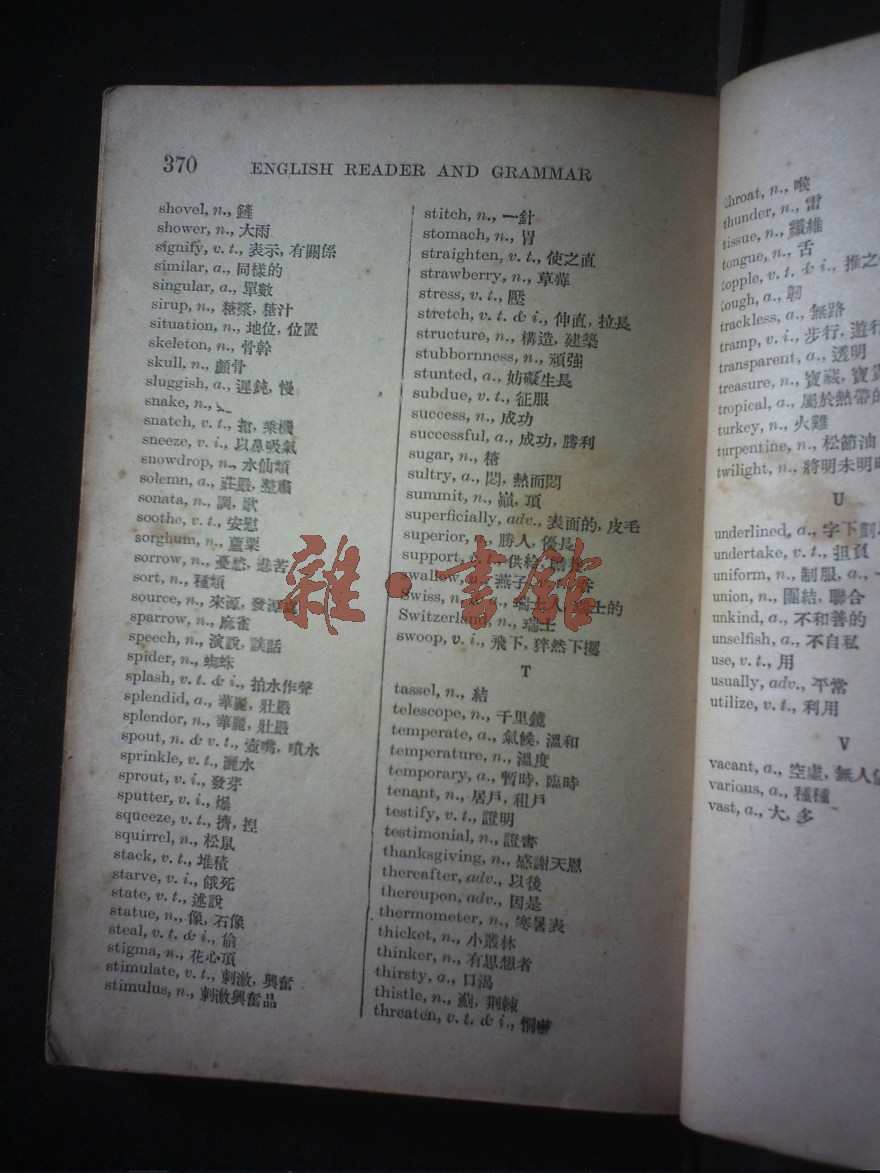 370
ENGLISH READER AND GRAMMAR
shovel, n., 鏟
shower, n., 大雨
signify, v. t., 表示, 有關係
similar, a., 同樣的
singular, a., 單數
sirup, n., 糖漿, 糖汁
situation, n., 地位, 位置
skeleton, n., 骨幹
skull, n., 顱骨
sluggish, a., 遲鈍, 慢
snake, n.,
snatch, v. t., 搶, 乘機
sneeze, v. i., 以鼻吸氣
snowdrop, n., 水仙類
solemn, a., 莊嚴, 整肅
sonata, n., 調, 歌
soothe, v. t., 安慰
sorghum, n., 蘆粟
sorrow, n., 憂愁, 悲苦
sort, n., 種類
source, n., 來源, 發源
sparrow, n., 麻雀
speech, n., 演說, 談話
spider, n., 蜘蛛
splash, v. t. & i., 拍水作聲
splendid, a., 華麗, 壯嚴
splendor, n., 華麗, 壯嚴
spout, n. & v. t., 壺嘴, 噴水
sprinkle, v. t., 灑水
sprout, v. i., 發芽
sputter, v. i., 爆
squeeze, v. t., 擠, 捏
squirrel, n., 松鼠
stack, v. t., 堆積
starve, v. i., 餓死
state, v. t., 述說
statue, n., 像, 石像
steal, v. t. & i., 偷
stigma, n., 花心頂
stimulate, v. t., 刺激, 興奮
stimulus, n., 刺激興奮品
stitch, n., 一針
stomach, n., 胃
straighten, v. t., 使之直
strawberry, n., 草莓
stress, v. t., 壓
stretch, v. t. & i., 伸直, 拉長
structure, n., 構造, 建築
stubbornness, n., 頑強
stunted, a., 妨礙生長
subdue, v. t., 征服
success, n., 成功
successful, a., 成功, 勝利
sugar, n., 糖
sultry, a., 悶, 熱而悶
summit, n., 巔, 頂
superficially, adv., 表面的, 皮毛
superior, n., 勝人, 優長
support, v. t., 供給,
swallow, n., 燕子,
Swiss, n.
Switzerland, n., 瑞士
swoop, v. i., 飛下, 猝然下攫
T
tassel, n., 結
telescope, n., 千里鏡
temperate, a., 氣候, 溫和
temperature, n., 溫度
temporary, a., 暫時, 臨時
tenant, n., 居戶, 租戶
testify, v. t., 證明
testimonial, n., 證書
thanksgiving, n., 感謝天恩
thereafter, adv., 以後
thereupon, adv., 因是
thermometer, n., 寒暑表
thicket, n., 小叢林
thinker, n., 有思想者
thirsty, a., 口渴
thistle, n., 薊, 荆棘
threaten, v. t. & i., 恫嚇
throat, n., 喉
thunder, n., 雷
tissue, n., 纖維
tongue, n., 舌
topple, v. t. & i., 推之
tough, a., 韌
trackless, a., 無路
tramp, v. i., 步行, 遊行
transparent, a., 透明
treasure, n., 寶藏, 寶貴
tropical, a., 屬於熱帶的
turkey, n., 火雞
turpentine, n., 松節油
twilight, n., 將明未明
U
underlined, a., 字下劃
undertake, v. t., 担負
uniform, n., 制服, a., 一
union, n., 團結, 聯合
unkind, a., 不和善的
unselfish, a., 不自私
use, v. t., 用
usually, adv., 平常
utilize, v. t., 利用
V
vacant, a., 空虛, 無人
various, a., 種種
vast, a., 大, 多
雜·書館